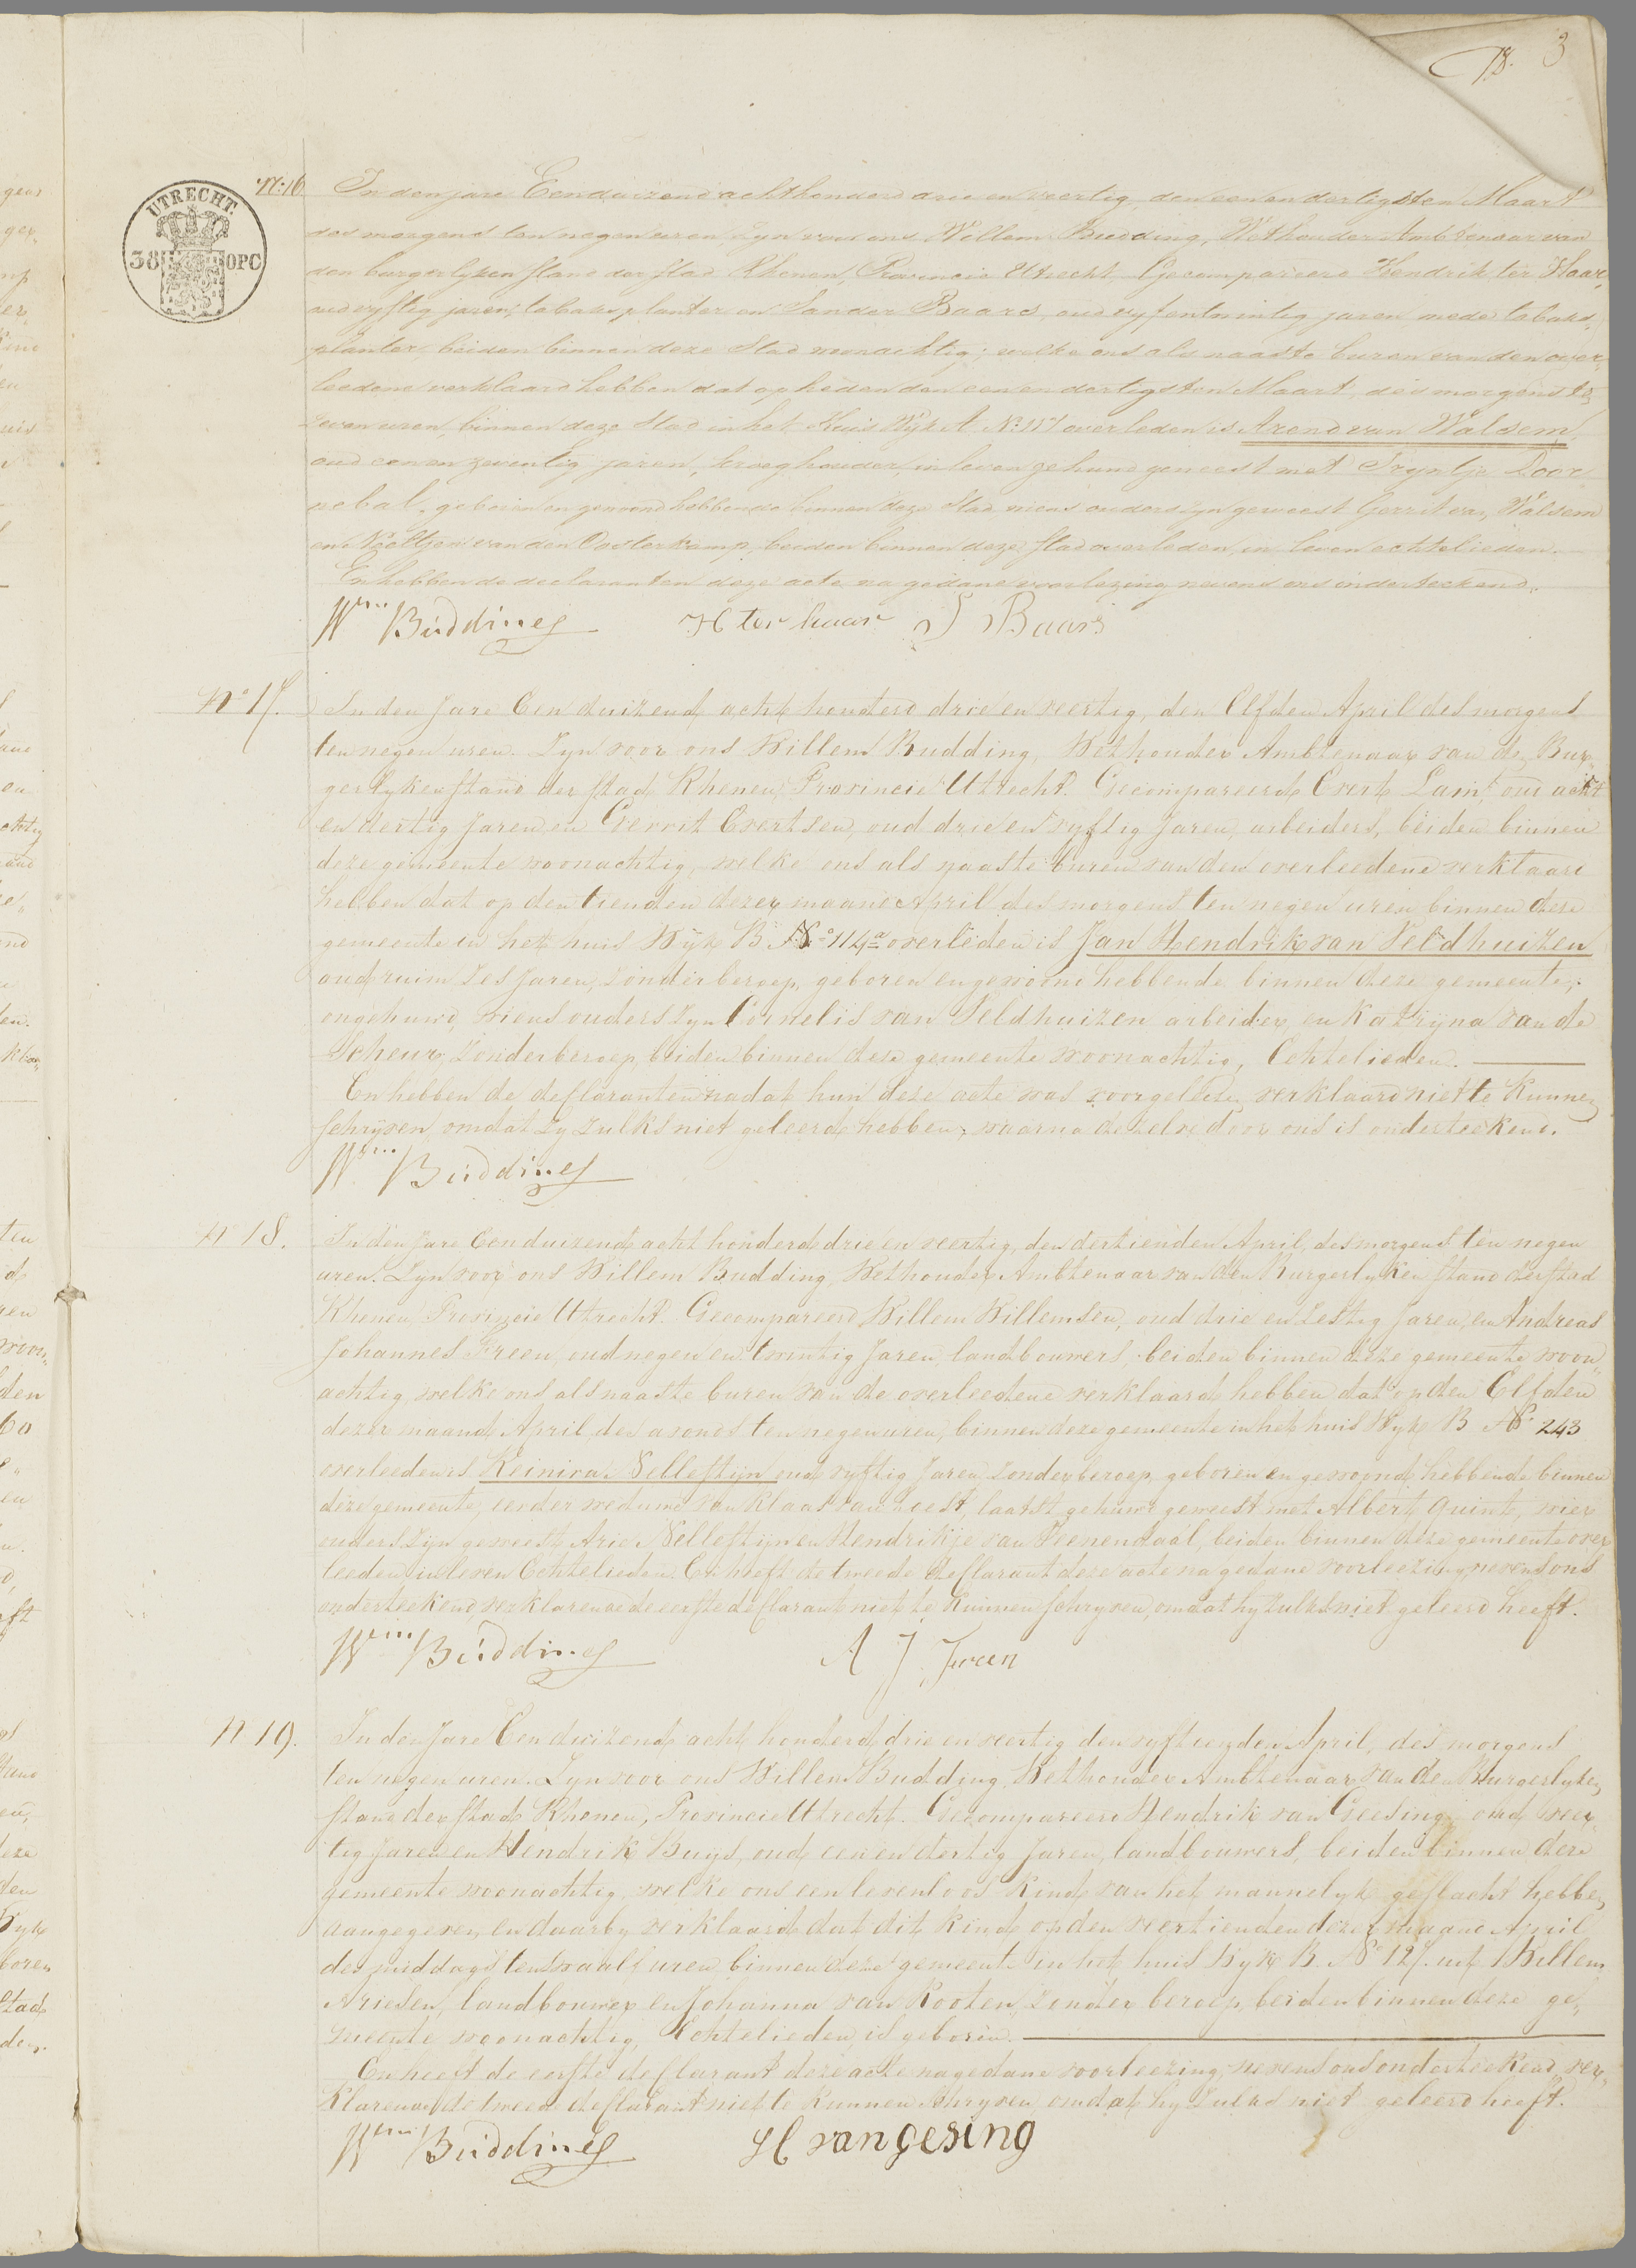 3
UTRECHT
38 OPC
No 16
In den jare Eenduizend achthonderd drie en veertig, den een en dertigsten Maart
des morgens ten negen uren, zyn voor ons Willem Budding, Wethouder Ambtenaar van
den burgerlyken stand der stad Rhenen, Provincie Utrecht, Gecompareerd Hendrik ter Haar,
oud vyftig jaren, tabaksplanter en Sander Baars, oud vyfentwintig jaren mede tabaks-
planter, beiden binnen deze Stad woonachtig; welke ons als naaste buren van den over-
leedene verklaard hebben dat op heden den een en dertigsten Maart, des morgens te
zeven uren, binnen deze Stad in het Huis Wyk A No 157 overleden is Arend van Walsem,
oud een en zeventig jaren, kroeghouder, in leven gehuwd geweest met Tryntje Door-
nebal, geboren en gewoond hebbende binnen deze Stad wiens ouders zyn geweest Gerrit van Walsem
en Neeltje van den Oosterkamp, beiden binnen deze stad overleden, in leven echtelieden.
En hebben de declaranten deze acte na gedane voorlezing nevens ons onderteekend.
Wm Budding H ter haar S Baars
No 17.
In den Jare Een duizend acht honderd drie en veertig, den Elfden April des morgens
ten negen uren. Zyn voor ons Willem Budding, Wethouder Ambtenaar van de Bur-
gerlyken stand der stad Rhenen, Provincie Utrecht. Gecompareerd Evert Lam, oud acht
en dertig Jaren, en Gerrit Evertsen, oud drie en vyftig Jaren, arbeiders, beiden binnen
deze gemeente woonachtig, welke ons als naaste buren van den overleedene verklaard
hebben dat op den tienden dezer maand April des morgens ten negen uren binnen deze
gemeente in het huis Wyk B No 114a overleden is Jan Hendrik van Veldhuizen
oud ruim zes Jaren, zonder beroep, geboren en gewoond hebbende binnen deze gemeente,
ongehuwd, wiens ouders zyn Cornelis van Veldhuizen arbeider, en Katryna van de
Scheur, zonder beroep, beiden binnen deze gemeente woonachtig, Echtelieden.
En hebben de deklaranten nadat hun deze acte was voorgelezen, verklaard niet te Kunnen
schryven, omdat zy zulks niet geleerd hebben, waarna dezelve door ons is onderteekend.
Wm Budding
No 18.
In den Jare Een duizend acht honderd drie en veertig, den dertienden April, des morgens ten negen
uren. Zyn voor ons Willem Budding, Wethouder Ambtenaar van den Burgerlyken stand der stad
Rhenen, Provincie Utrecht. Gecompareerd Willem Willemsen, oud drie en zestig Jaren, en Andreas
Johannes Freen, oud negen en twintig Jaren, landbouwers, beiden binnen deze gemeente woon-
achtig, welke ons als naaste buren van de overleedene verklaard hebben dat op den Elfden
dezer maand April, des avonds ten negen uren, binnen deze gemeente in het huis Wyk B No 243
overleeden is Reinira Nellestijn oud vyftig Jaren, zonder beroep, geboren en gewoond hebbende binnen
deze gemeente, eerder weduwe van Klaas van Soest, laatst gehuwd geweest met Albert Quint, wier
ouders zyn geweest Arie Nellestijn en Hendrikje van Veenendaal, beiden binnen deze gemeente over
leeden in leven Echtelieden. En heeft de tweede deklarant deze acte na gedane voorleezing, nevens ons
onderteekend, verklarende de eerste deklarant niet te Kunnen schryven, omdat hy zulks niet geleerd heeft.
Wm Budding A J Freen
No 19.
In den Jare Een duizend acht honderd drie en veertig den vyftienden April, des morgens
ten negen uren. Zyn voor ons Willem Budding, Wethouder Ambtenaar van den Burgerlyken
stand der stad Rhenen, Provincie Utrecht. Gecompareerd Hendrik van Geesing, oud veer-
tig Jaren en Hendrik Buys, oud een en dertig Jaren, landbouwers, beiden binnen deze
gemeente woonachtig, welke ons een levenloos Kind van het mannelyk geslacht hebben
aangegeven, en daarby verklaard dat dit kind op den veertienden dezer maand April
des middags ten twaalf uren binnen deze gemeente in het huis Wyk B. No 127. uit Willem
Ariesen, landbouwer en Johanna van Kooten, zonder beroep, beiden binnen deze ge-
meente woonachtig, Echtelieden, is geboren.
En heeft de eerste deklarant deze acte na gedane voorleezing, nevens ons onderteekend, ver-
klarende de tweede deklarant niet te Kunnen schryven, omdat hy zulks niet geleerd heeft.
Wm Budding H van gesing